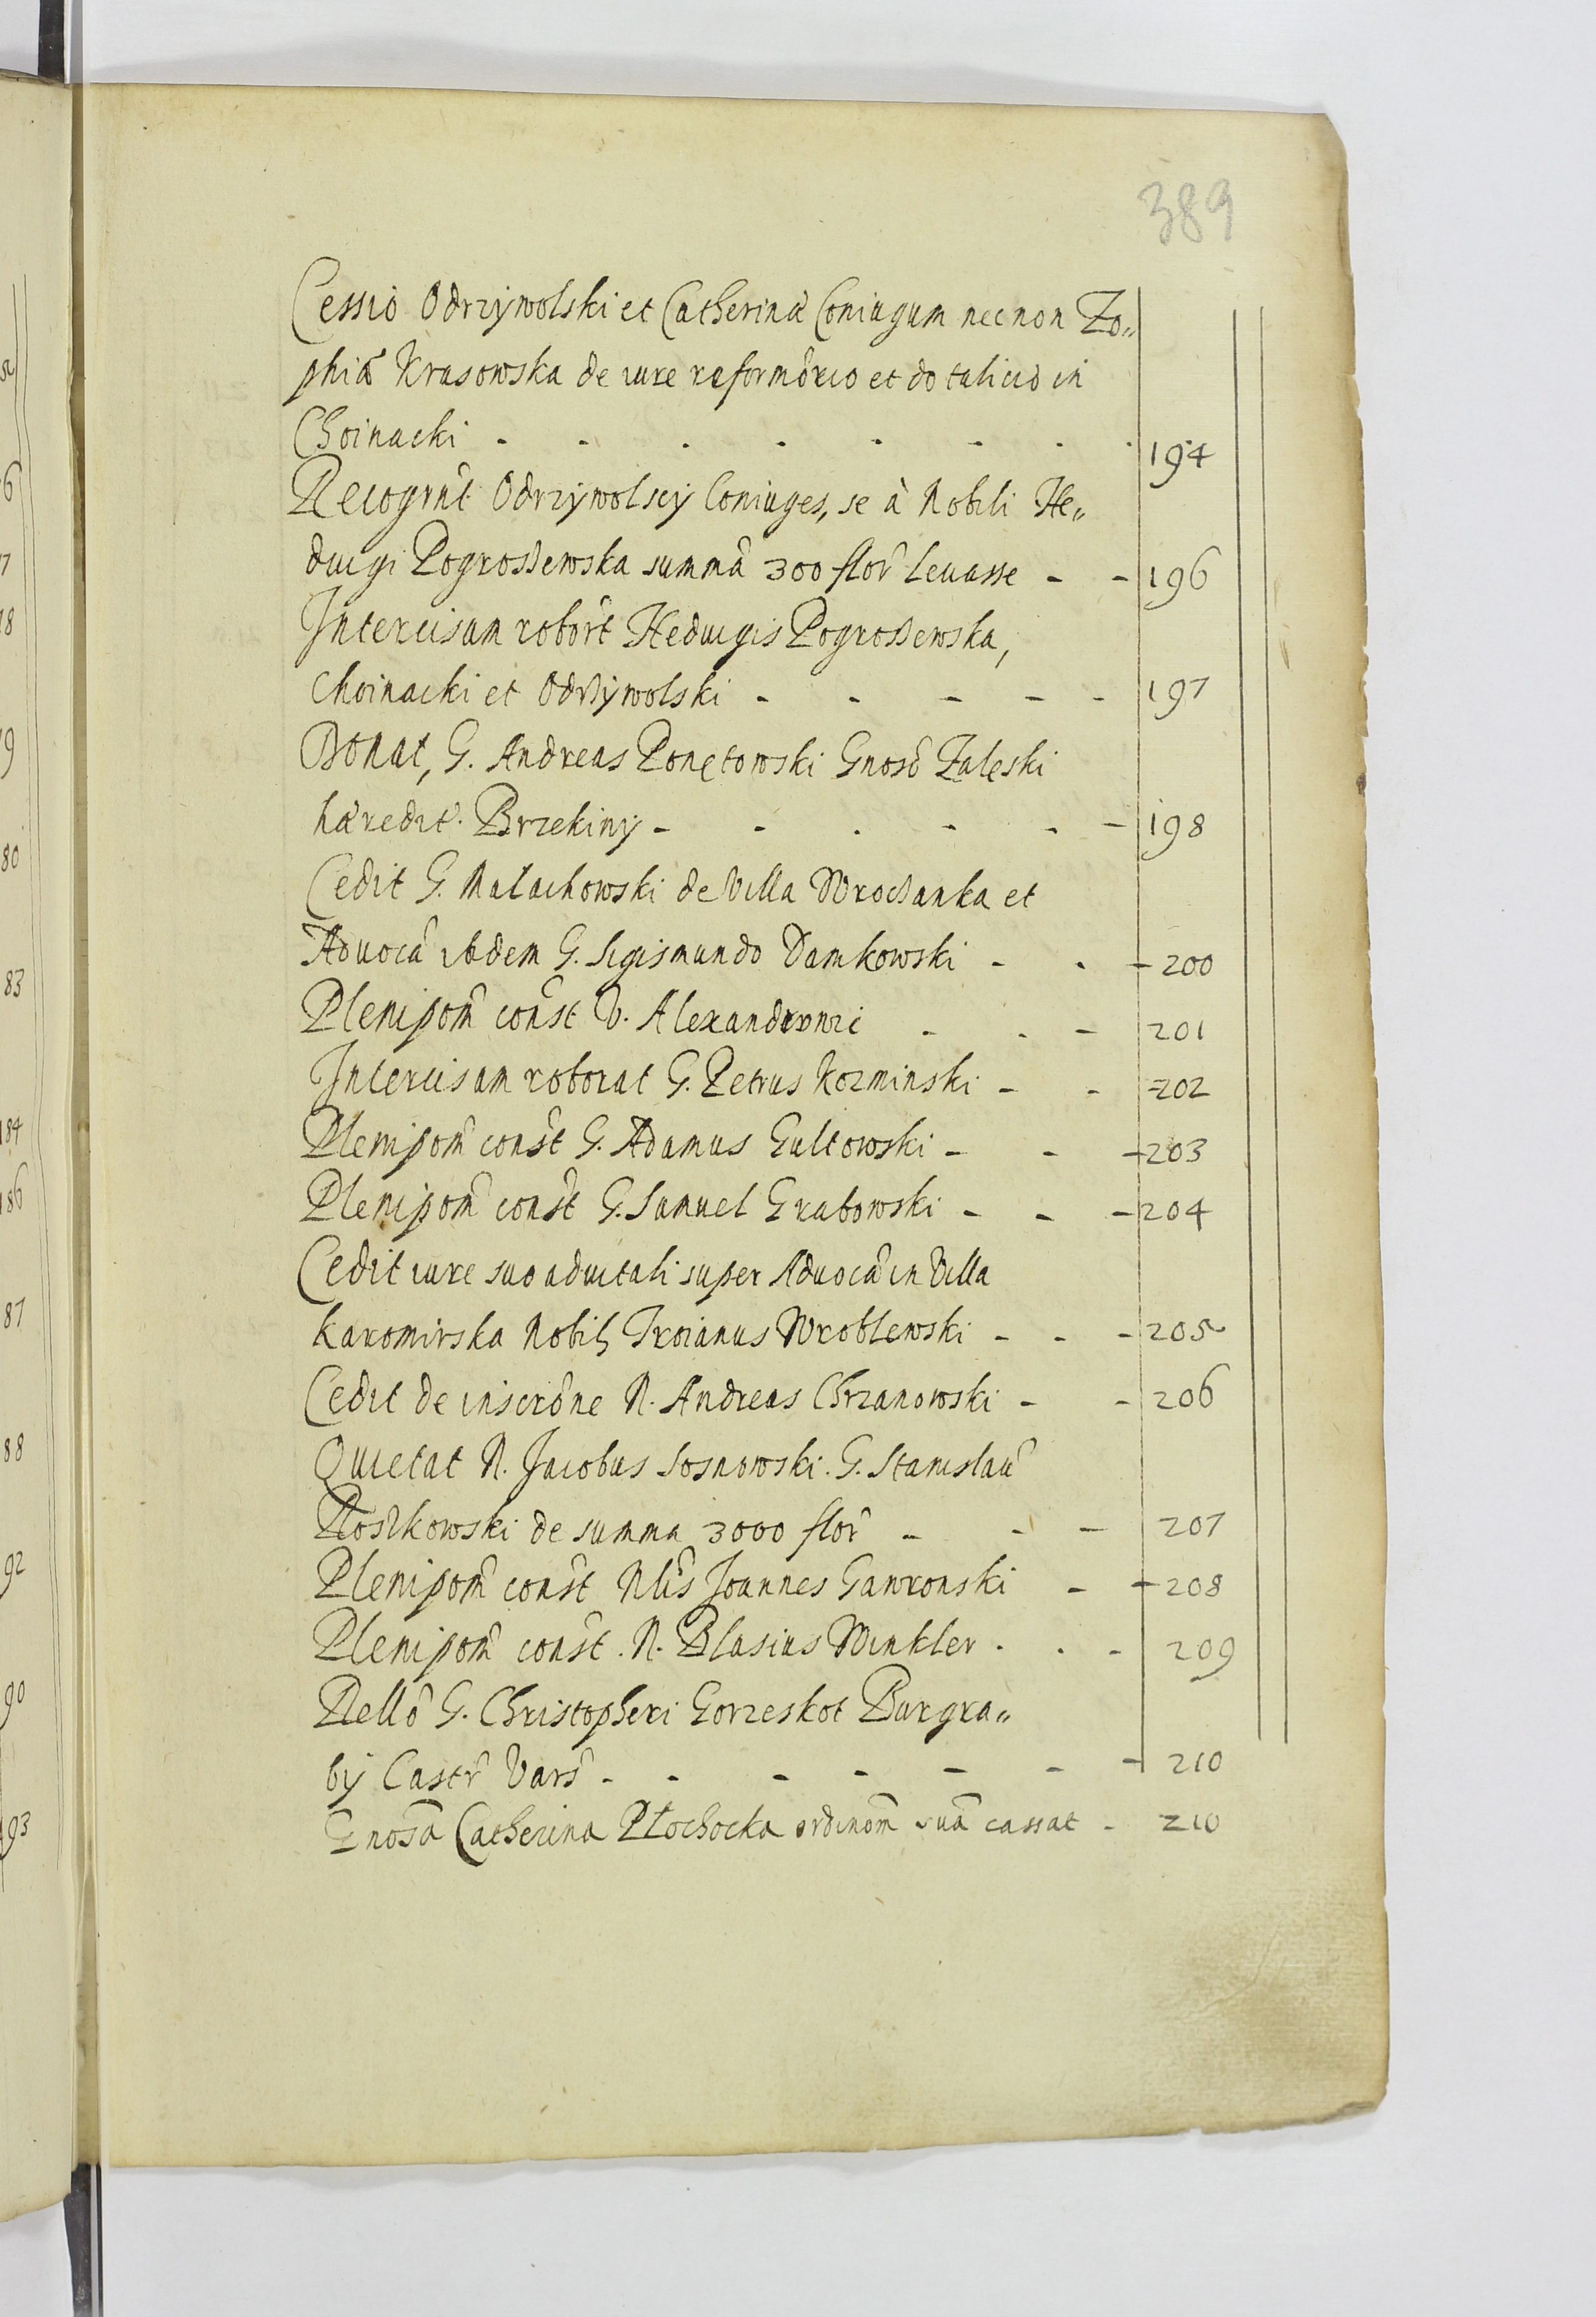 389
Cessio Odrzywolski et Catherinæ Coniugum necnon Zo„
phiæ Krasowska de iure reformôrio et dotalicio in
Choinacki - - - - - - - 194
Recognt̂ Odrzywolscy Coniuges, se à Nobili He„
duigi Pogrossewska summâ 300 flor̂ levasse - - 196
Intercisam robor̂t Heduigis Pogrossewska,
Choinacki et Odrzywolski - - - - - 197
Donat, G. Andreas Ponętowski Gnosô Zaleski
hæredit. Brzekiny - - - - - - 198
Cedit G. Małachowski de Villa Wrocsanka et
Advocâ ibidem G. Sigismundo Damkowski - - - 200
Plenipom̂ conŝt V. Alexandrowic - - - 201
Intercisam roborat G. Petrus Kozminski - - - 202
Plenipom̂ conŝt G. Adamus Gultowski - - - 203
Plenipom̂ conŝt G. Samuel Grabowski - - - 204
Cedit iure suo aduitali super Advocâ in Villa
Karomirska Nobilis Troianus Wroblewski - - - 205
Cedit de inscrône N. Andreas Chrzanowski - - 206
Quietat N. Jacobus Sosnowski. G. Stanislaû
Roszkowski de summa 3000 flor̂ - - - 207
Plenipom̂ conŝt Nlîs Joannes Gawronski - - 208
Plenipom̂ conŝt. N. Blasius Winkler - - - 209
Rellô G. Christopheri Gorzeskot Burgra„
bÿ Castr̂ Varŝ - - - - - - - 210
Gnosâ Catherina Płochocka ordinom̂ suâ cassat - 210